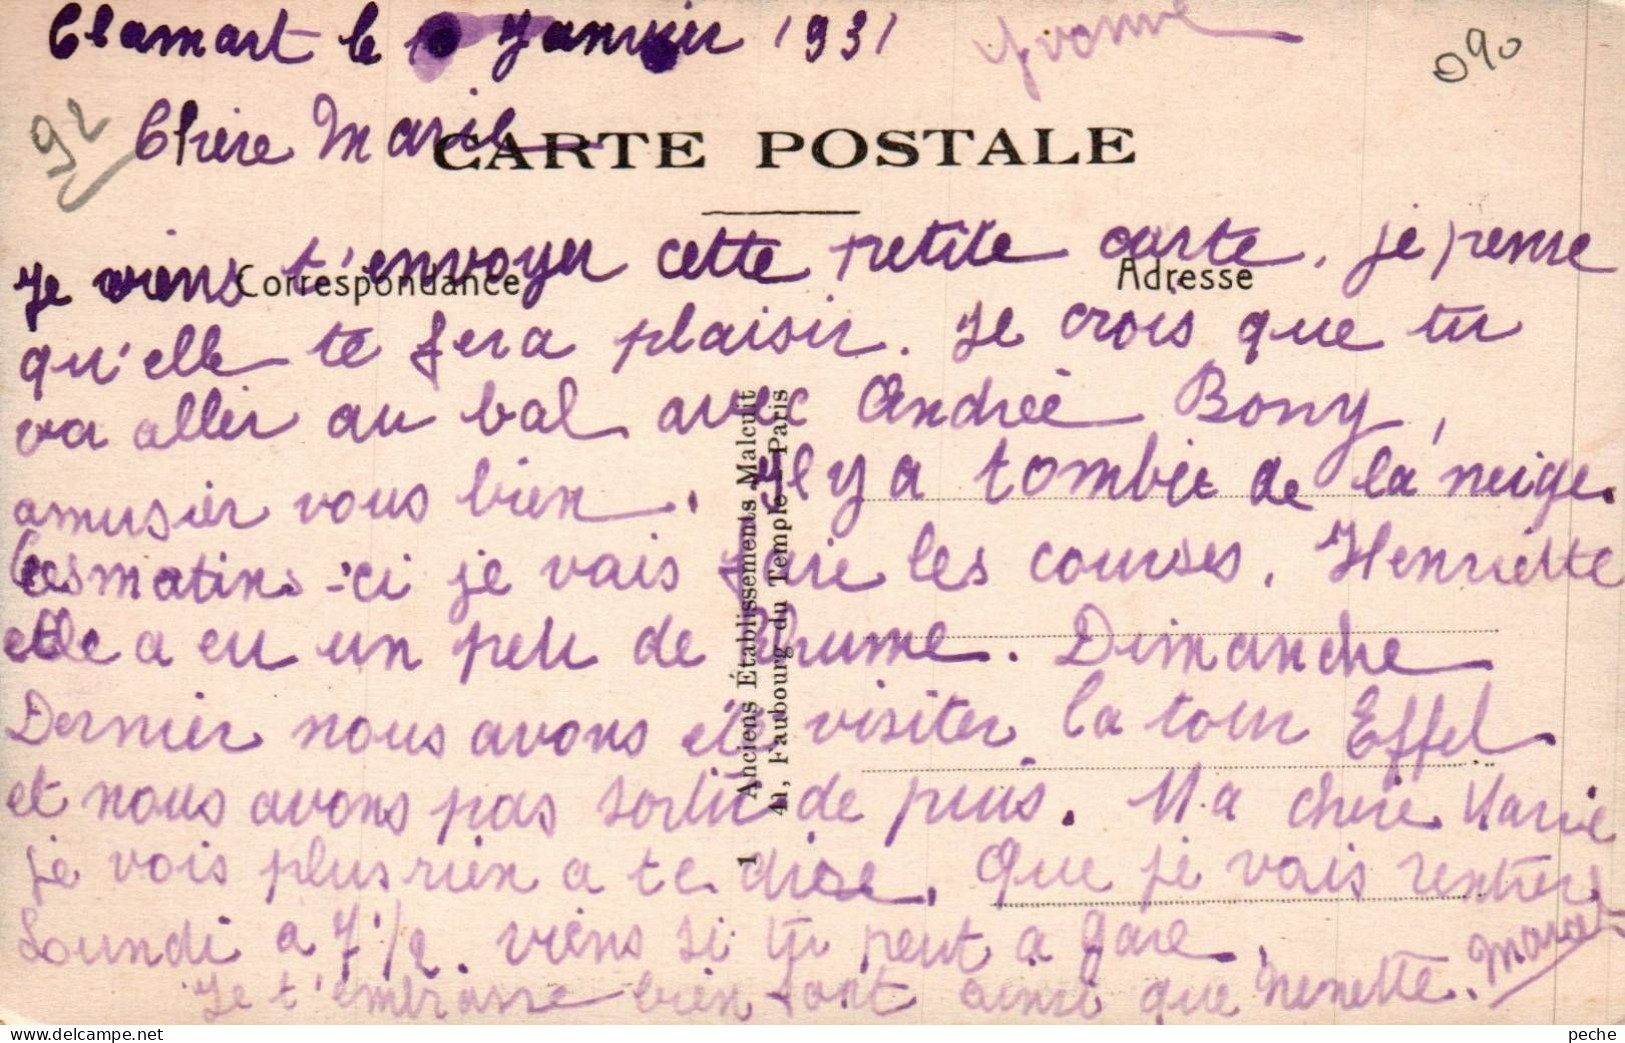 Clamart le Janvier 1931 Yvonne
090
92
Chère Marie
CARTE POSTALE
Correspondance
Adresse
Je viens t'envoyer cette petite carte, je pense
qu'elle te fera plaisir. Je crois que tu
va aller au bal avec Andrée Bony,
amusier vous bien. Il y a tombée de la neige.
Ces matins-ci je vais faire les courses. Henriette
elle a eu un peu de Rhume. Dimanche
Dernier nous avons été visiter la tour Effel
et nous avons pas sortir de puis. Ma chere Marie
je vois plus rien a te dire. Que je vais rentrer
Lundi a 7 1/2. viens si tu peut a gare.
Je t'embrasse bien fort ainsi que Nenette. Marcel
1 Anciens Établissements Malcuit
41, Faubourg du Temple - Paris
1
peche